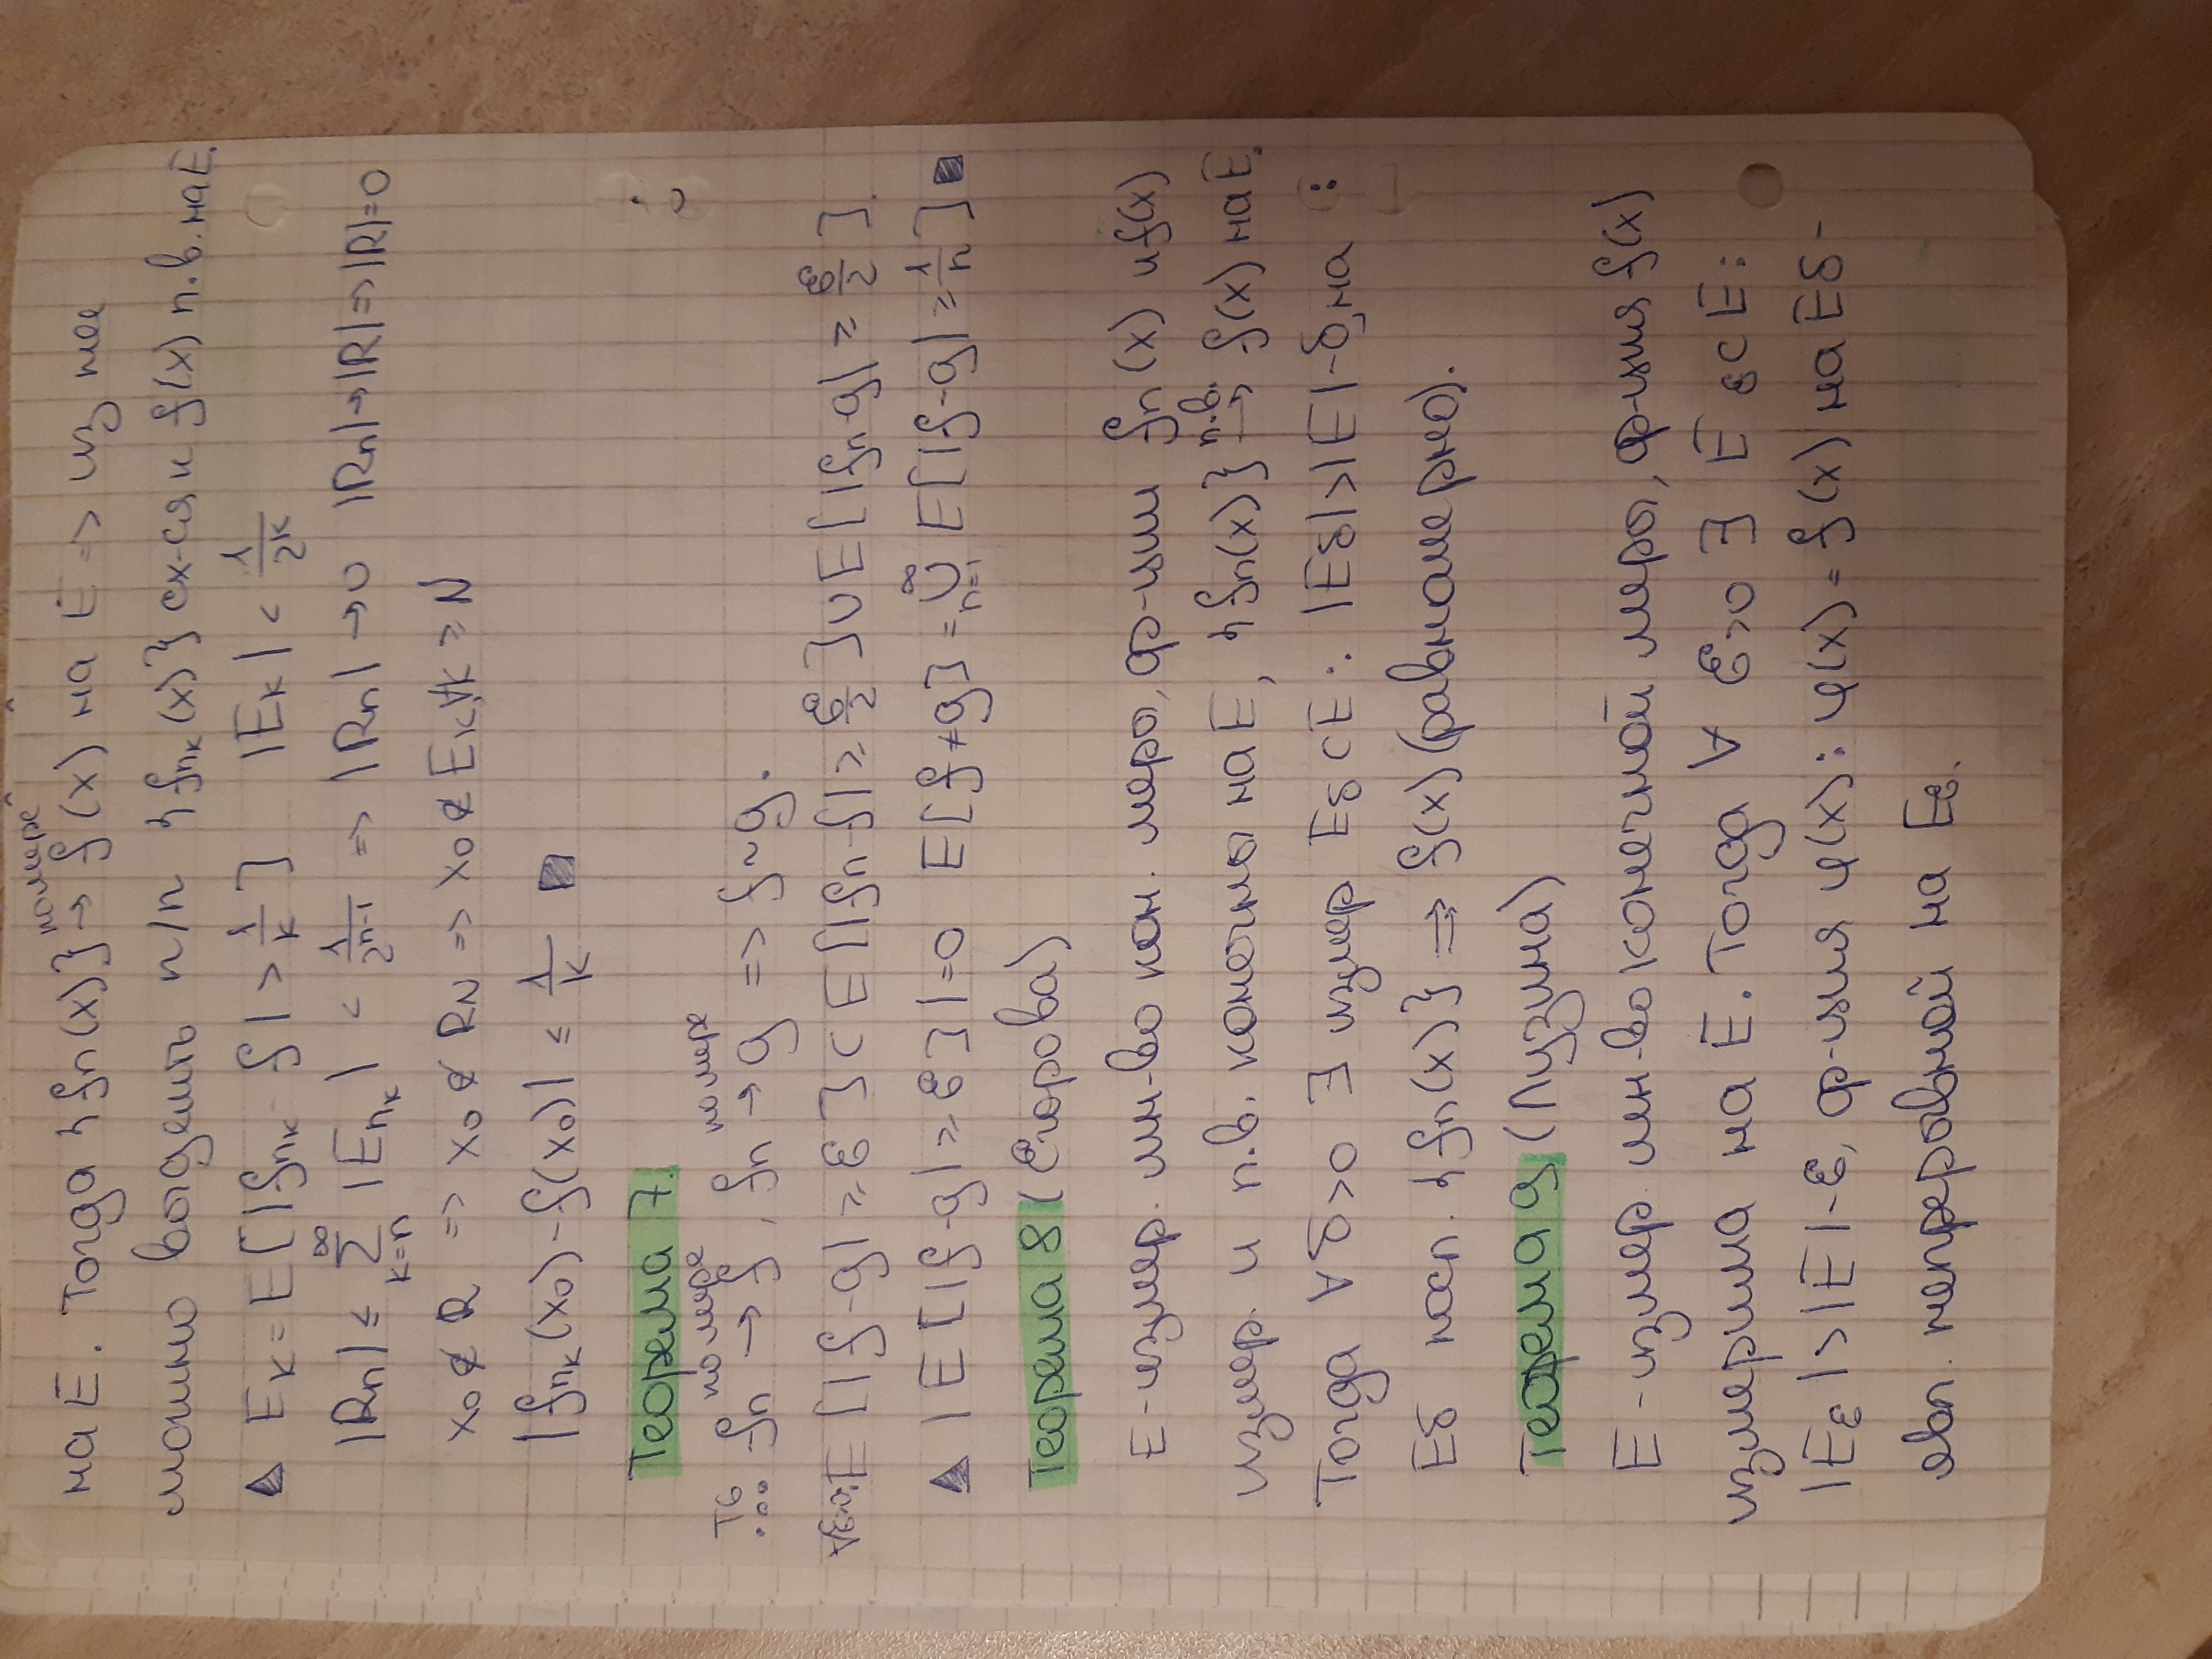 на E. Тогда {fn(x)} по мере → f(x) на E => из нее
можно выделить п/п {fnk(x)} сх-ся к f(x) п.в. на E.
▲ Ek = E[|fnk - f| > 1/k] |Ek| < 1/2^k
|Rn| ≤ ∑_{k=n}^∞ |Enk| < 1/2^{n-1} => |Rn| → 0 |Rn| → |R| => |R| = 0
x0 ∉ R => x0 ∉ RN => x0 ∉ Ek, ∀k ≥ N
|fnk(x0) - f(x0)| ≤ 1/k ■
Теорема 7.
fn по мере → f, fn по мере → g => f ~ g.
E[|f-g| ≥ ε] ⊂ E[|fn-f| ≥ ε/2] ∪ E[|fn-g| ≥ ε/2].
▲ |E[|f-g| ≥ ε]| = 0 E[f≠g] = ∪_{n=1}^∞ E[|f-g| ≥ 1/n] ■
Теорема 8 (Егорова)
E - измер. мн-во кон. мера, ф-ции fn(x) и f(x)
измер. и п.в. конечны на E, {fn(x)} п.в. → f(x) на E.
Тогда ∀δ>0 ∃ измер Eδ ⊂ E: |Eδ| > |E| - δ, на :
Eδ посл. {fn(x)} ⇉ f(x) (равномерно).
Теорема 9 (Лузина)
E - измер мн-во конечной меры, ф-ция f(x)
измерима на E. Тогда ∀ ε>0 ∃ E ε ⊂ E:
|Eε| > |E| - ε, ф-ция φ(x): φ(x) = f(x) на Eδ -
явл. непрерывной на Eε.